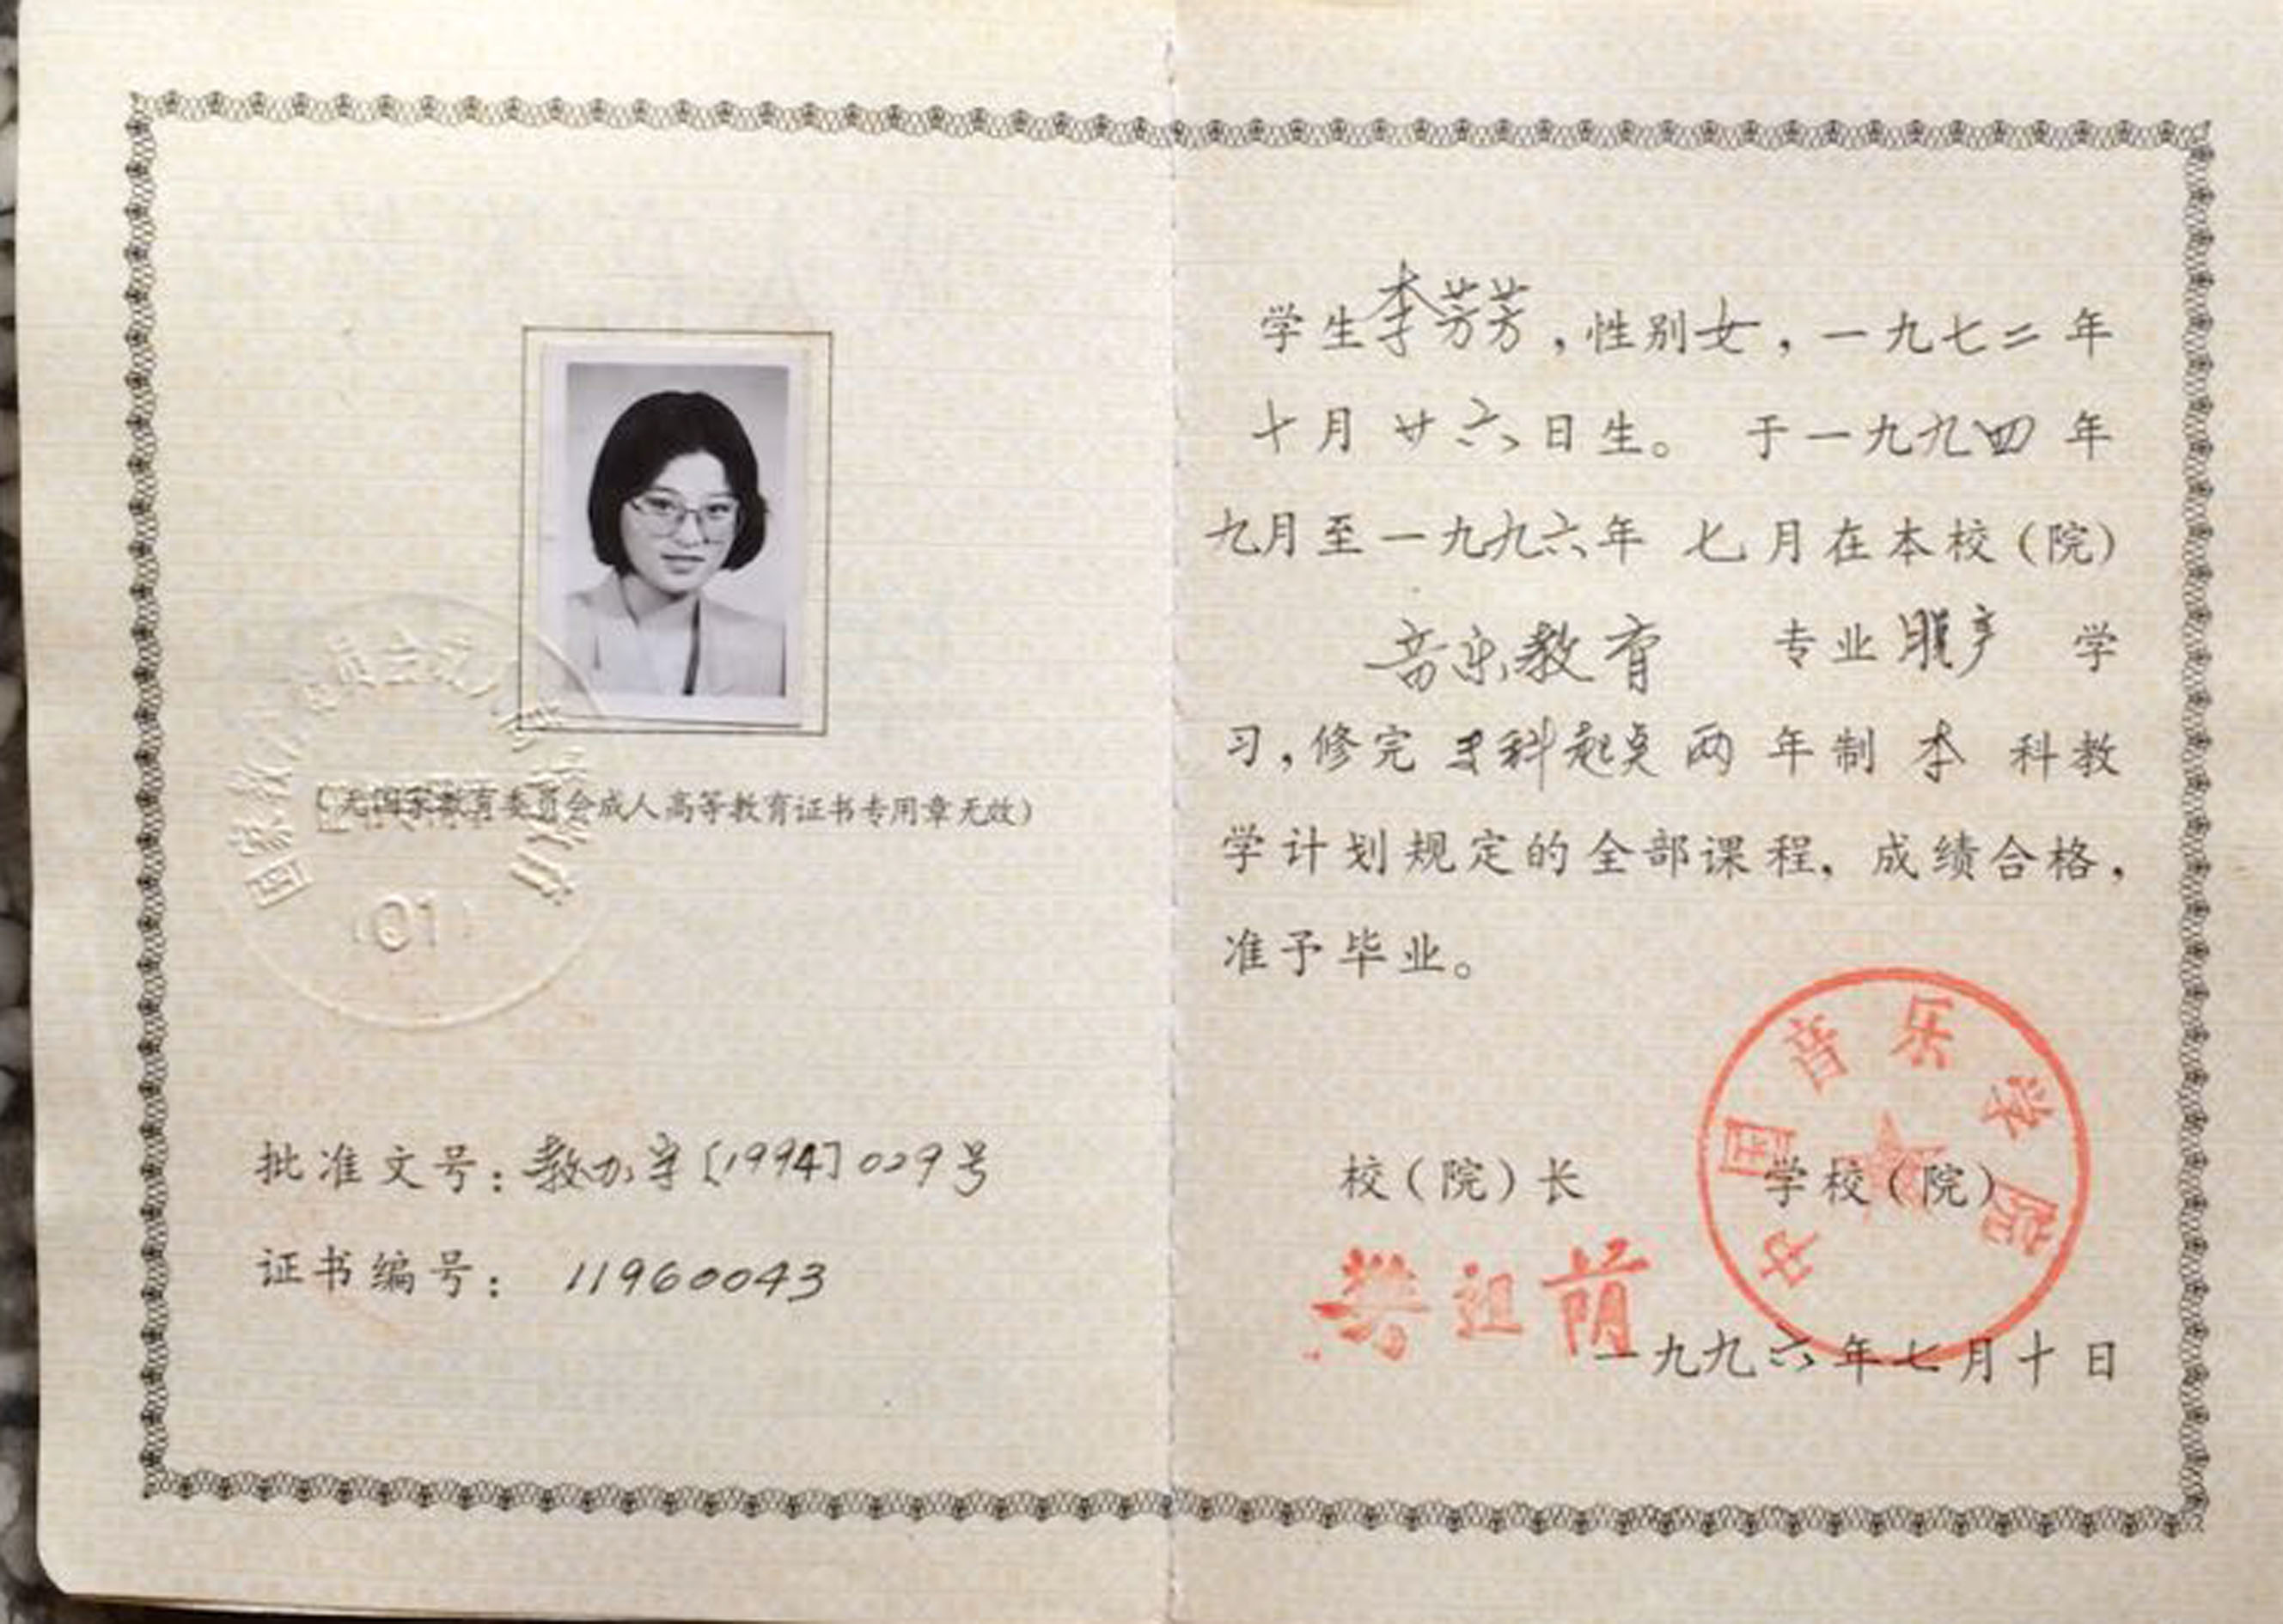 (无国家教育委员会成人高等教育证书专用章无效)
01
批准文号：教办字[1994]029号
证书编号： 11960043
学生李芳芳，性别女，一九七二年
十月廿六日生。 于一九九四年
九月至一九九六年 七月在本校(院)
音乐教育 专业脱产 学
习，修完 专科起点 两 年制 本 科教
学计划规定的全部课程，成绩合格，
准予毕业。
中国音乐学院
校(院)长 学校(院)
樊祖荫
一九九六年七月十日